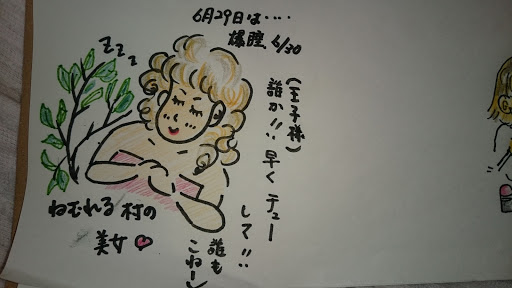 6月29日は・・・・
爆睡 6/30
zzz
(王子様)
誰か!! 早く チュー
して!!
誰も
こねー)
ねむれる 村の
美女